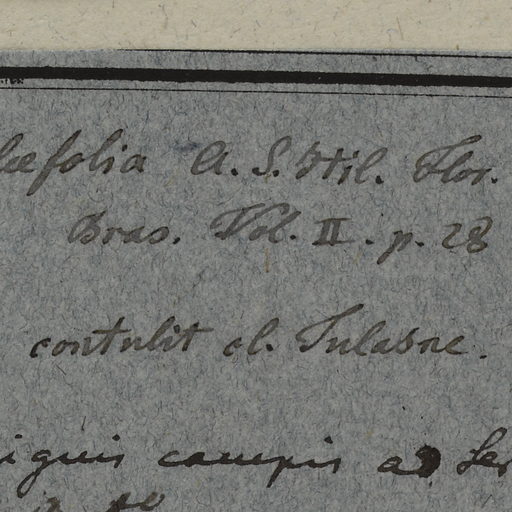 læfolia A. S. Hil. Flor.
Bras. Vol. II. p. 28
contulit cl. Tulasne.
iguis campis ad Ser